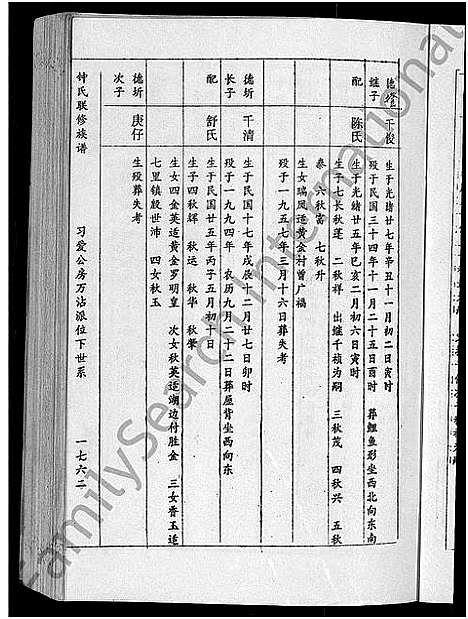 德修继子
干俊
生于光绪廿七年辛丑十一月初二日寅时
殁于民国三十四年十一月二十五日酉时 葬鲤鱼形坐西北向东南
配
陈氏
生于光绪廿五年己亥二月初六日寅时
生子七长秋蓬 二秋祥 出继千祯为嗣 三秋茂 四秋兴 五秋
泰 六秋富 七秋升
生女瑞凤适黄金村曾广福
殁于一九五七年三月十六日葬失考
德圻长子
千清
生于民国十七年戊辰十二月廿七日卯时
殁于一九九四年 农历九月二十二日葬屋背坐西向东
配
舒氏
生于民国廿五年丙子五月初十日
生子四秋辉 秋运 秋华 秋肇
生女四金英适黄金罗明皇 次女秋英适湖边付胜金 三女香玉适
七里镇殷世沛 四女秋玉
德圻次子
庚仔
生殁葬失考
钟氏联修族谱
习爱公房万沾派位下世系
一七六二
FamilySearch International